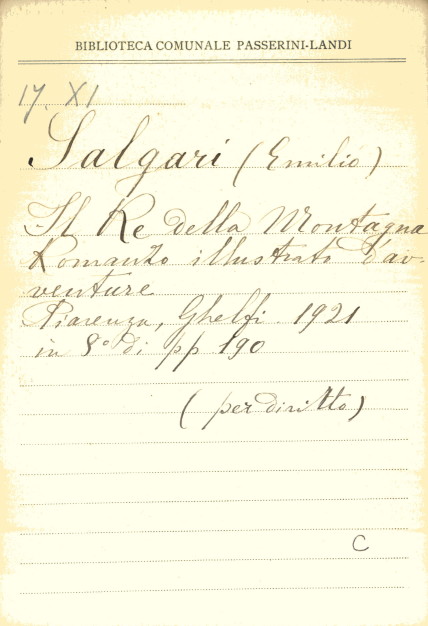 BIBLIOTECA COMUNALE PASSERINI-LANDI
17. XI
Salgari (Emilio)
Il Re della Montagna
Romanzo illustrato d'av-
venture
Piacenza, Ghelfi. 1921
in 8° di pp 190
(per diritto)
C